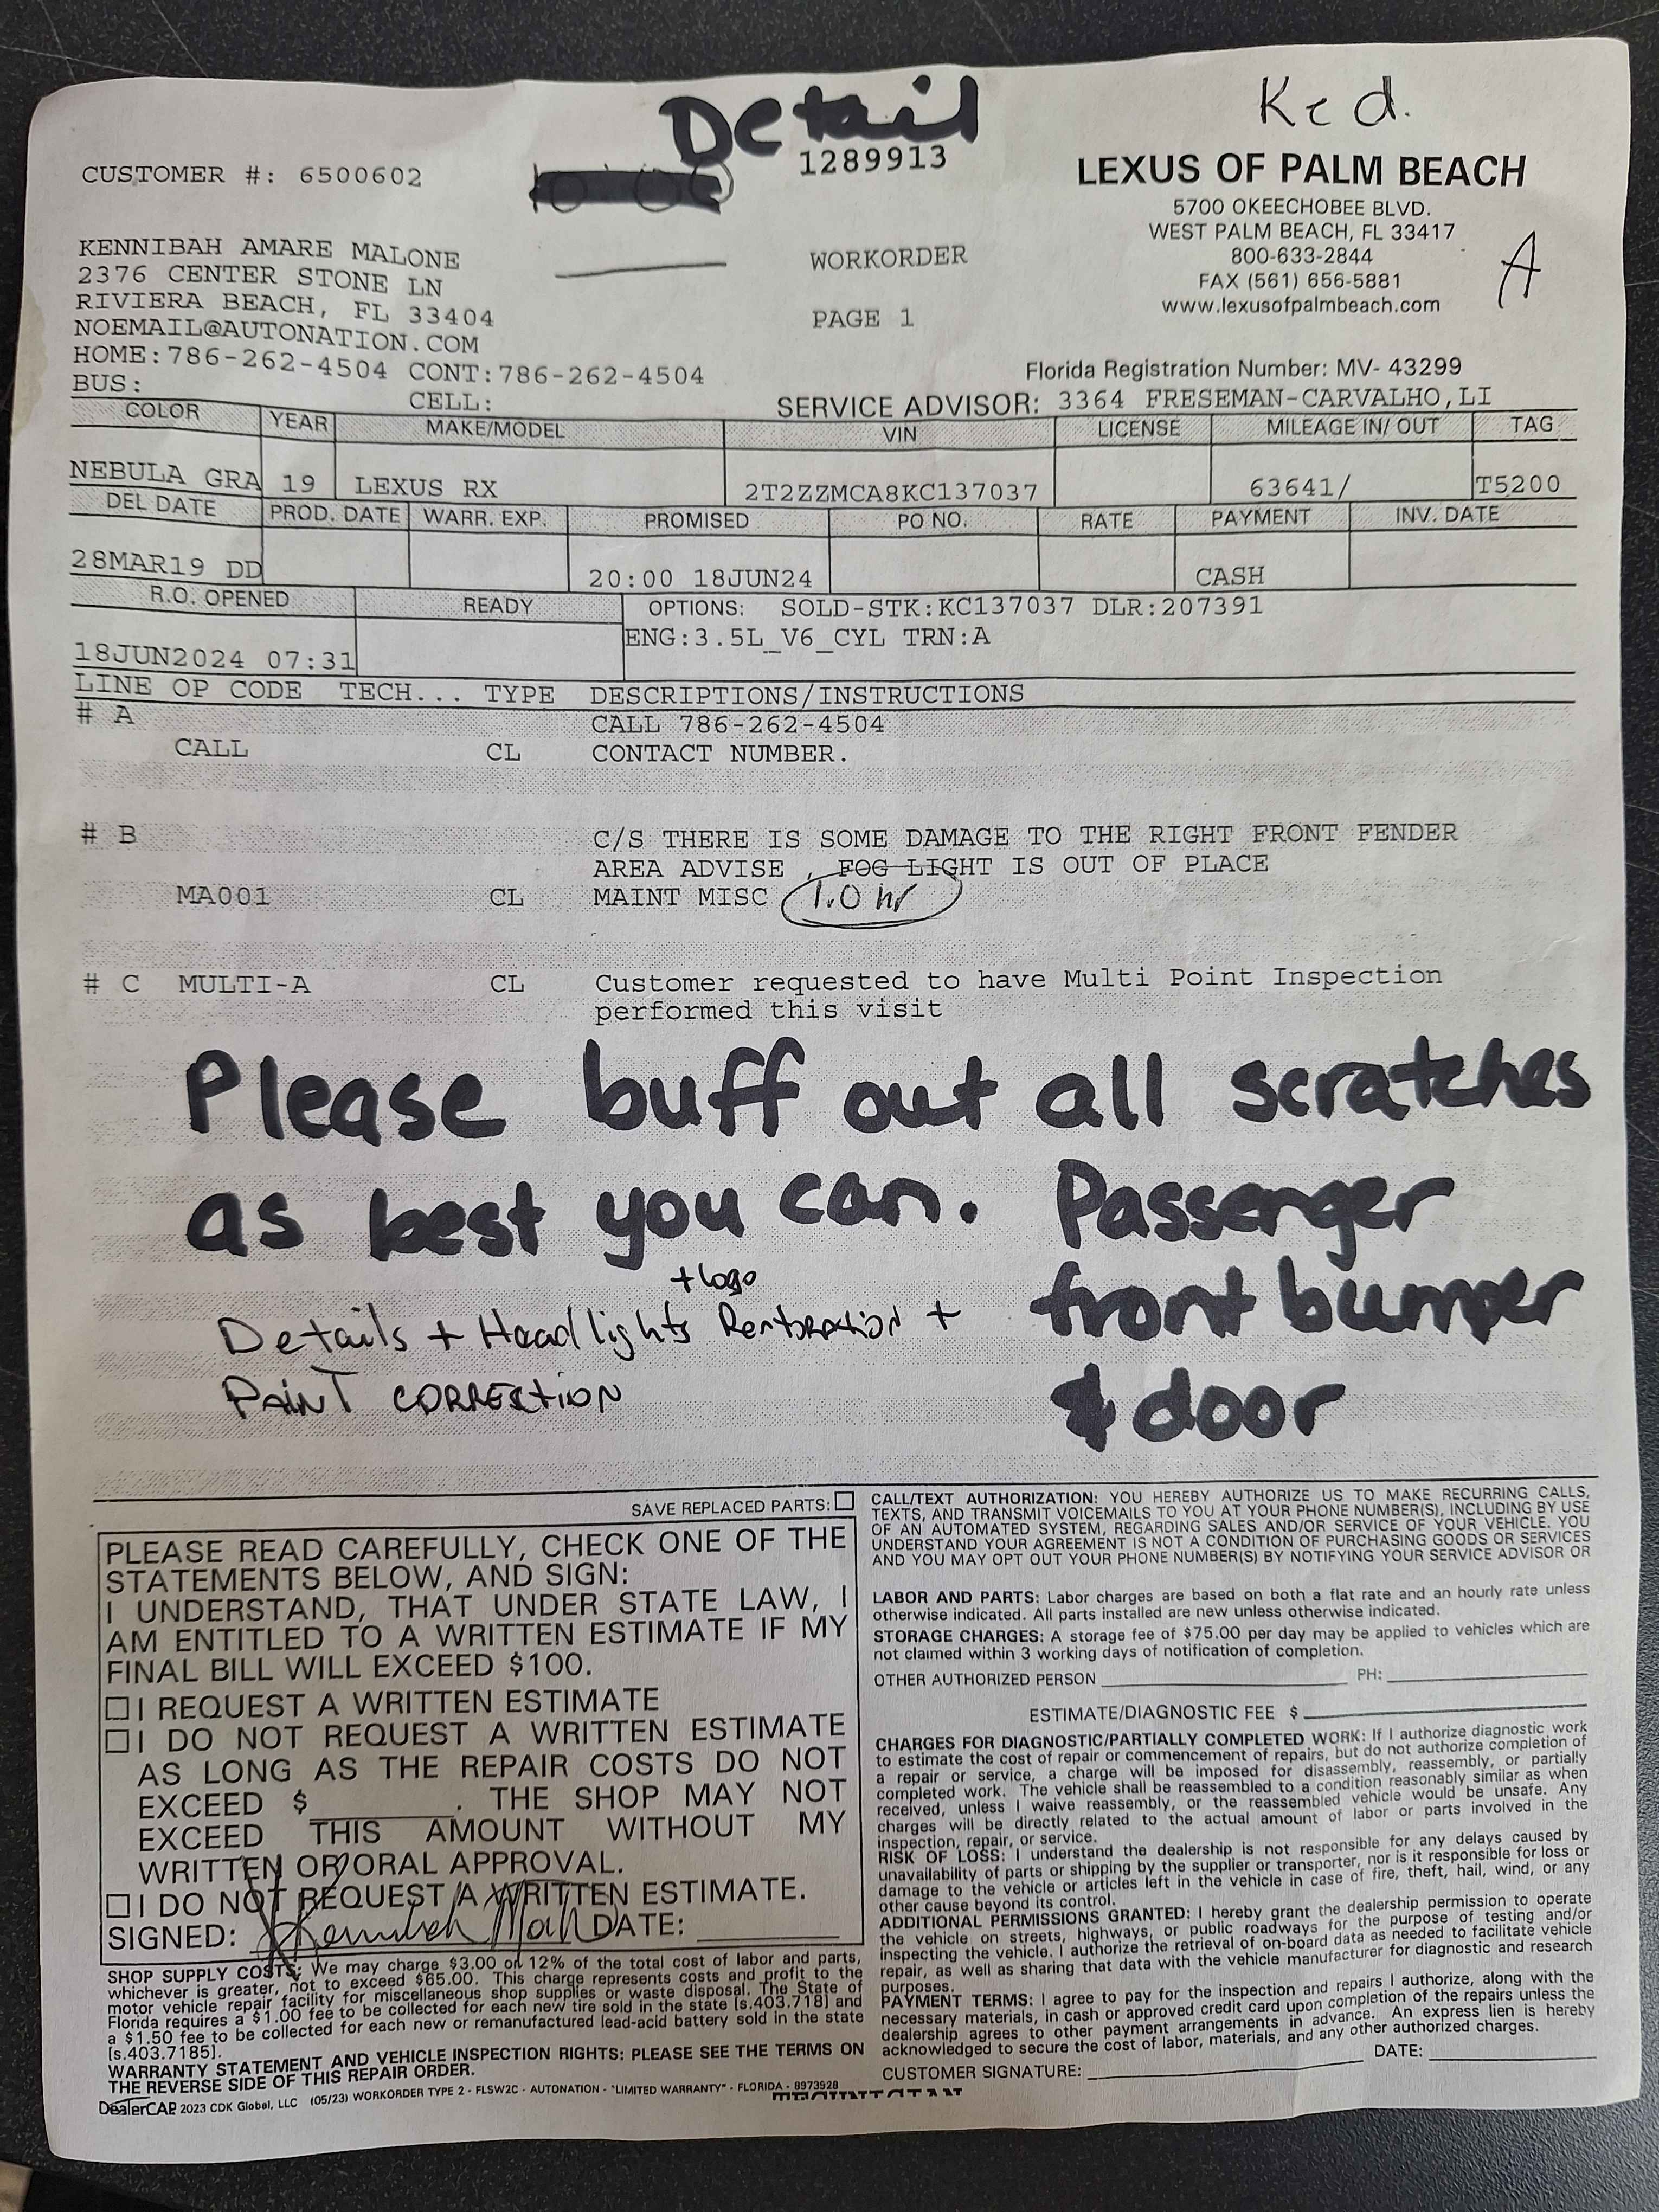 Detail
Ked.
CUSTOMER #: 6500602
1289913
LEXUS OF PALM BEACH
5700 OKEECHOBEE BLVD.
WEST PALM BEACH, FL 33417
800-633-2844
FAX (561) 656-5881
www.lexusofpalmbeach.com
A
KENNIBAH AMARE MALONE
2376 CENTER STONE LN
RIVIERA BEACH, FL 33404
NOEMAIL@AUTONATION.COM
HOME:786-262-4504 CONT:786-262-4504
BUS: CELL:
WORKORDER
PAGE 1
Florida Registration Number: MV- 43299
SERVICE ADVISOR: 3364 FRESEMAN-CARVALHO,LI
COLOR YEAR MAKE/MODEL VIN LICENSE MILEAGE IN/ OUT TAG
NEBULA GRA 19 LEXUS RX 2T2ZZMCA8KC137037 63641/ T5200
DEL DATE PROD. DATE WARR. EXP. PROMISED PO NO. RATE PAYMENT INV. DATE
28MAR19 DD 20:00 18JUN24 CASH
R.O. OPENED READY OPTIONS: SOLD-STK:KC137037 DLR:207391
ENG:3.5L_V6_CYL TRN:A
18JUN2024 07:31
LINE OP CODE TECH... TYPE DESCRIPTIONS/INSTRUCTIONS
# A CALL 786-262-4504
CALL CL CONTACT NUMBER.
# B C/S THERE IS SOME DAMAGE TO THE RIGHT FRONT FENDER
AREA ADVISE , FOG LIGHT IS OUT OF PLACE
MA001 CL MAINT MISC 1.0 hr
# C MULTI-A CL Customer requested to have Multi Point Inspection
performed this visit
Please buff out all scratches
as best you can. Passenger
front bumper
& door
+ logo
Details + Headlights Restoration +
PAINT CORRECTION
SAVE REPLACED PARTS:
PLEASE READ CAREFULLY, CHECK ONE OF THE
STATEMENTS BELOW, AND SIGN:
I UNDERSTAND, THAT UNDER STATE LAW, I
AM ENTITLED TO A WRITTEN ESTIMATE IF MY
FINAL BILL WILL EXCEED $100.
I REQUEST A WRITTEN ESTIMATE
I DO NOT REQUEST A WRITTEN ESTIMATE
AS LONG AS THE REPAIR COSTS DO NOT
EXCEED $________. THE SHOP MAY NOT
EXCEED THIS AMOUNT WITHOUT MY
WRITTEN OR ORAL APPROVAL.
I DO NOT REQUEST A WRITTEN ESTIMATE.
SIGNED: DATE:
SHOP SUPPLY COSTS: We may charge $3.00 or 12% of the total cost of labor and parts,
whichever is greater, not to exceed $65.00. This charge represents costs and profit to the
motor vehicle repair facility for miscellaneous shop supplies or waste disposal. The State of
Florida requires a $1.00 fee to be collected for each new tire sold in the state [s.403.718] and
a $1.50 fee to be collected for each new or remanufactured lead-acid battery sold in the state
[s.403.7185].
WARRANTY STATEMENT AND VEHICLE INSPECTION RIGHTS: PLEASE SEE THE TERMS ON
THE REVERSE SIDE OF THIS REPAIR ORDER.
DealerCAP 2023 CDK Global, LLC (05/23) WORKORDER TYPE 2 - FLSW2C - AUTONATION - "LIMITED WARRANTY" - FLORIDA - 8973928
CALL/TEXT AUTHORIZATION: YOU HEREBY AUTHORIZE US TO MAKE RECURRING CALLS,
TEXTS, AND TRANSMIT VOICEMAILS TO YOU AT YOUR PHONE NUMBER(S), INCLUDING BY USE
OF AN AUTOMATED SYSTEM, REGARDING SALES AND/OR SERVICE OF YOUR VEHICLE. YOU
UNDERSTAND YOUR AGREEMENT IS NOT A CONDITION OF PURCHASING GOODS OR SERVICES
AND YOU MAY OPT OUT YOUR PHONE NUMBER(S) BY NOTIFYING YOUR SERVICE ADVISOR OR
LABOR AND PARTS: Labor charges are based on both a flat rate and an hourly rate unless
otherwise indicated. All parts installed are new unless otherwise indicated.
STORAGE CHARGES: A storage fee of $75.00 per day may be applied to vehicles which are
not claimed within 3 working days of notification of completion.
OTHER AUTHORIZED PERSON PH:
ESTIMATE/DIAGNOSTIC FEE $
CHARGES FOR DIAGNOSTIC/PARTIALLY COMPLETED WORK: If I authorize diagnostic work
to estimate the cost of repair or commencement of repairs, but do not authorize completion of
a repair or service, a charge will be imposed for disassembly, reassembly, or partially
completed work. The vehicle shall be reassembled to a condition reasonably similar as when
received, unless I waive reassembly, or the reassembled vehicle would be unsafe. Any
charges will be directly related to the actual amount of labor or parts involved in the
inspection, repair, or service.
RISK OF LOSS: I understand the dealership is not responsible for any delays caused by
unavailability of parts or shipping by the supplier or transporter, nor is it responsible for loss or
damage to the vehicle or articles left in the vehicle in case of fire, theft, hail, wind, or any
other cause beyond its control.
ADDITIONAL PERMISSIONS GRANTED: I hereby grant the dealership permission to operate
the vehicle on streets, highways, or public roadways for the purpose of testing and/or
inspecting the vehicle. I authorize the retrieval of on-board data as needed to facilitate vehicle
repair, as well as sharing that data with the vehicle manufacturer for diagnostic and research
purposes.
PAYMENT TERMS: I agree to pay for the inspection and repairs I authorize, along with the
necessary materials, in cash or approved credit card upon completion of the repairs unless the
dealership agrees to other payment arrangements in advance. An express lien is hereby
acknowledged to secure the cost of labor, materials, and any other authorized charges.
CUSTOMER SIGNATURE: DATE: